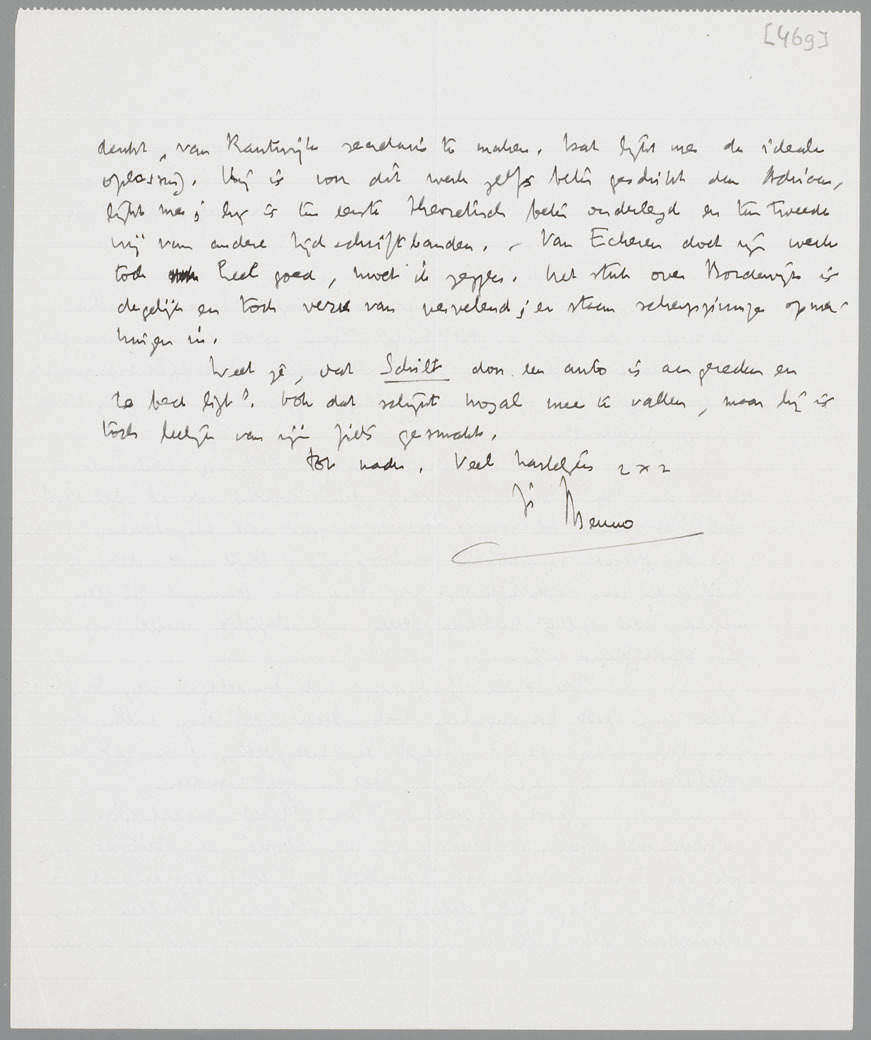 [469]
denkt, van Kantwijk secretaris te maken. Dat lijkt me de ideale
oplossing. Hij is voor dit werk zelfs beter geschikt dan Adriaan,
lijkt me; hij is ten eerste theoretisch beter onderlegd en ten tweede
vrij van andere tijdschriftbanden. – Van Eckeren doet zijn werk
toch heel goed, moet ik zeggen. Het stuk over Bordewijk is
degelijk en toch verre van vervelend; er staan scherpzinnige opmer-
kingen in.
Weet je, dat Schilt door een auto is aangereden en
te bed ligt? Ook dat schijnt nogal mee te vallen, maar hij is
toch leelijk van zijn fiets gesmakt.
Tot nader. Veel hartelijks 2 x 2
je Menno